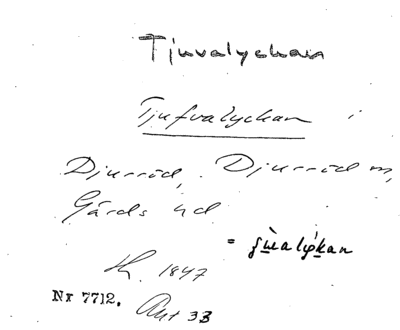 Tjuvalyckan
Tjufvalyckan i
Djurröd, Djurröd sn,
Gärds hd
Sk. 1847
Nr 7712. Akt 33